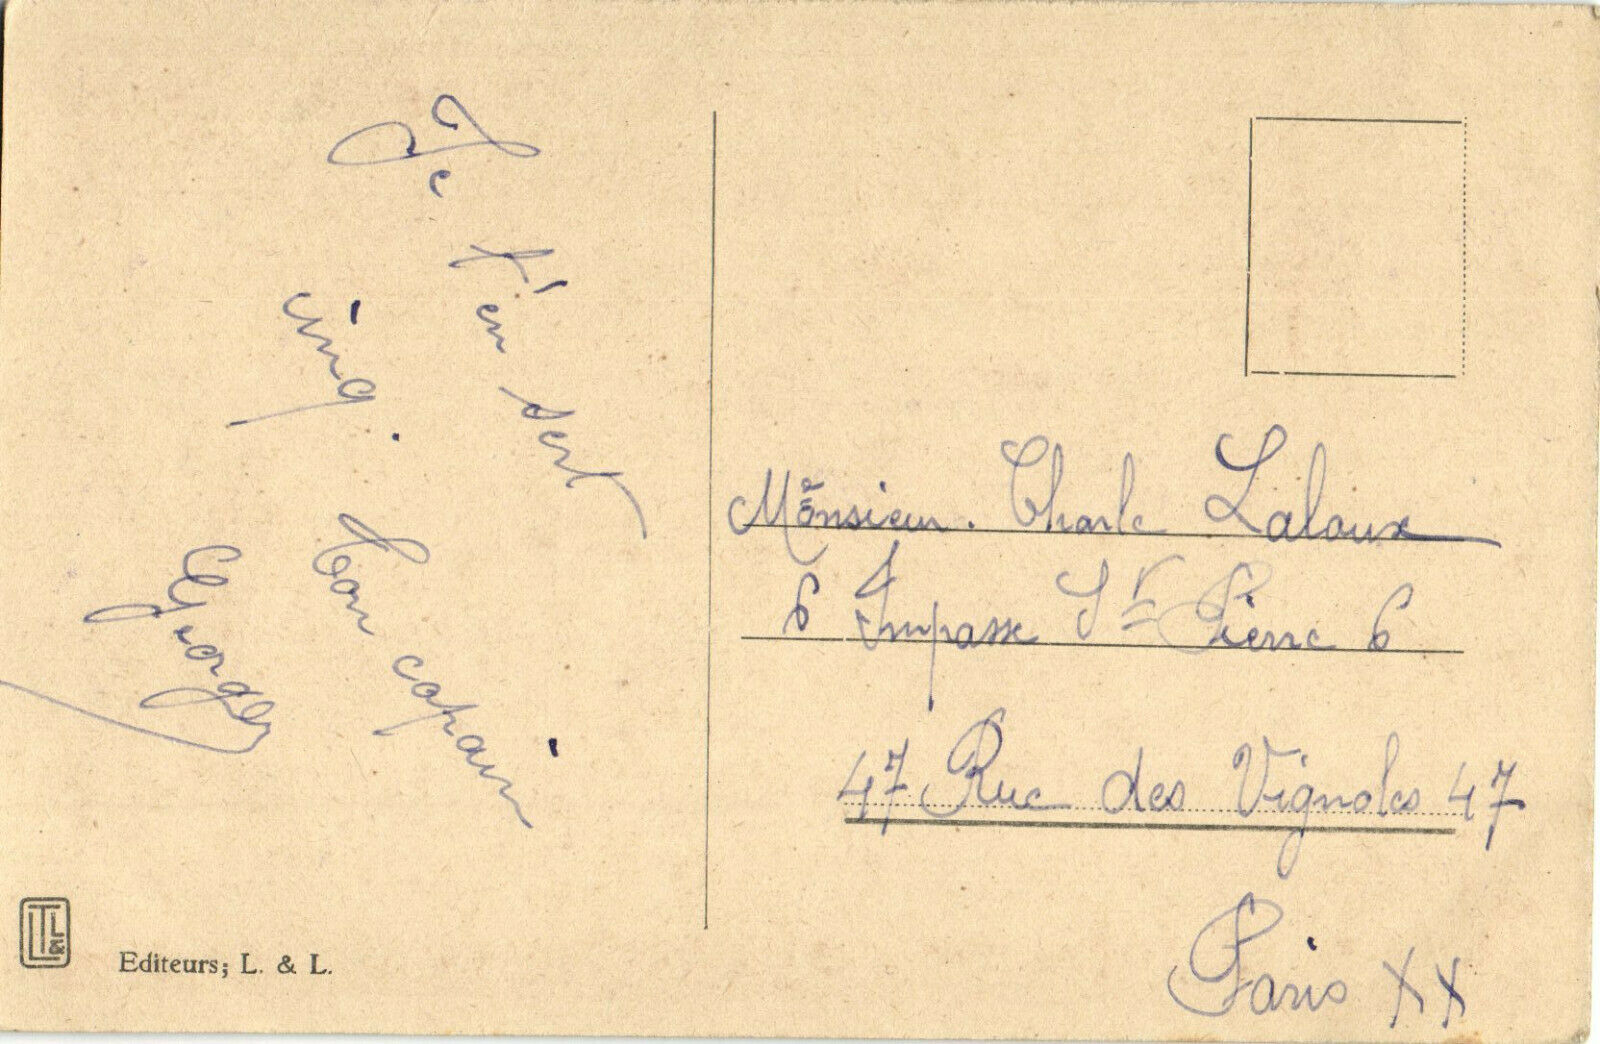 Je t'en sert
cinq.
Ton copain
Georges
Monsieur. Charle Laloux
6 Impasse St Pierre 6
47 Rue des Vignoles 47
Paris XX
Editeurs; L. & L.